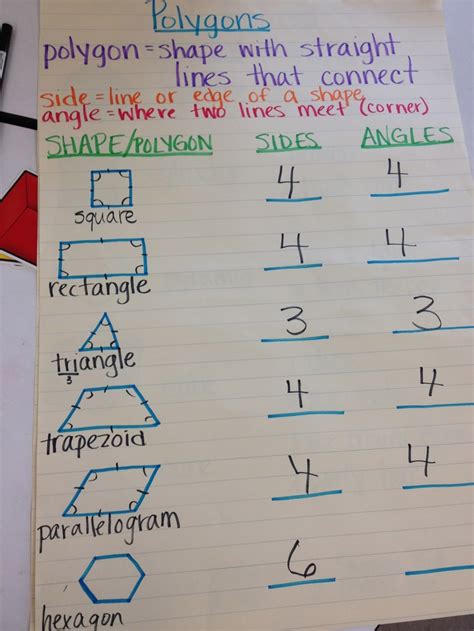 Polygons
polygon = shape with straight
lines that connect
side = line or edge of a shape
angle = where two lines meet (corner)
SHAPE/POLYGON SIDES ANGLES
4 4
square
4 4
rectangle
3 3
triangle
3
4 4
trapezoid
4 4
parallelogram
6
hexagon